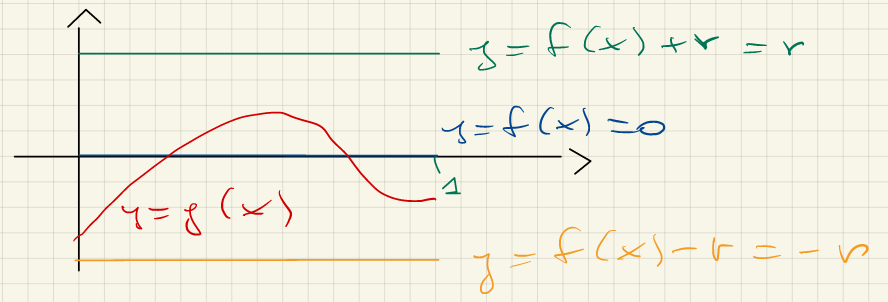 y = f(x) + r = r
y = f(x) = 0
1
y = g(x)
y = f(x) - r = - r